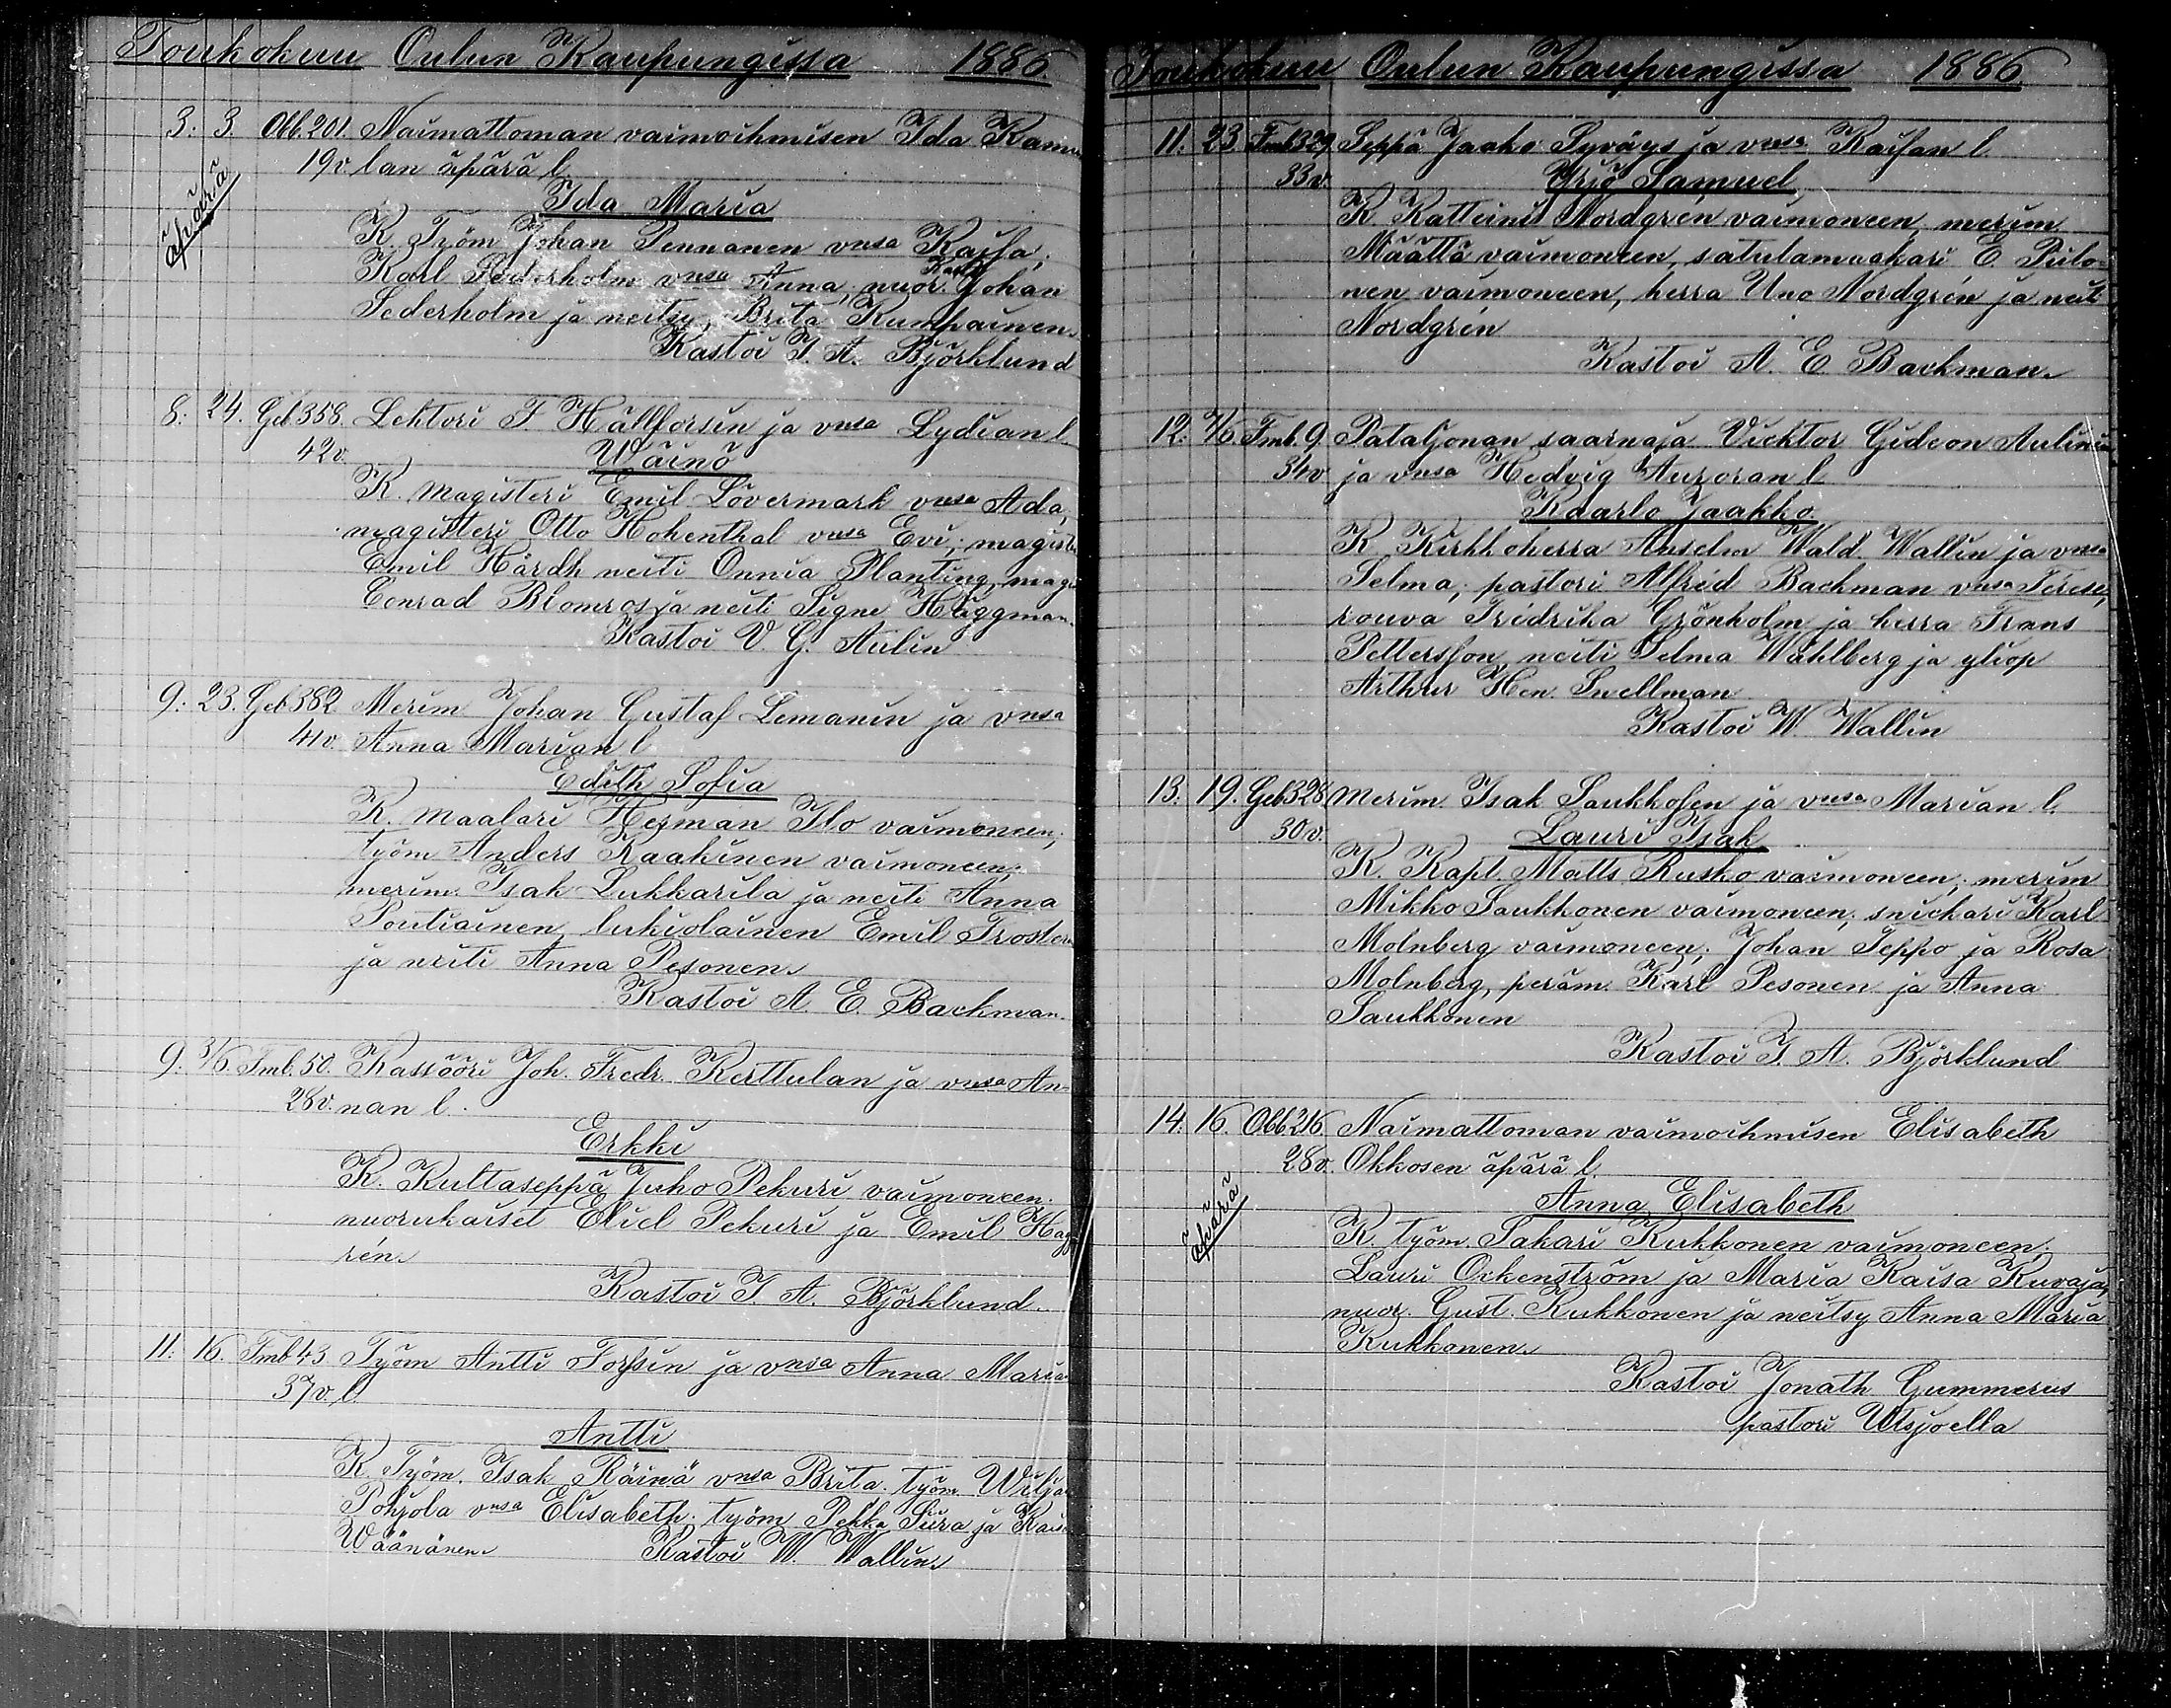 Toukokuu Oulun Kaupungissa 1886.
3. 3. Obb.201. Naimattoman vaimoihmisen Ida
19v. lan äpärä l.
äpärä
Ida Maria
K. Työm Johan Pennanen vnsa Kaisa;
Karl Söderholm vnsa Anna, nuor. Johan
Sederholm ja neitsy Brita Kumpainen.
Kastoi J. A. Björklund
8. 24. Geb 358. Lektori F Hällforsin ja vnsa Lydian l.
42v.
Wäinö
K. Magisteri Emil Lövermark vnsa Ada,
magisteri Otto Hohenthal vnsa Evi;
Emil Hårdh neiti Onnia Planting,
Conrad Blomros ja neiti Signe Häggman.
Kastoi V. G. Aulin
9. 23. Geb 382 Merim Johan Gustaf Lemanin ja vnsa
41v. Anna Marian l
Edith Sofia
K. Maalari Herman Ilo vaimoneen;
työm Anders Kaakinen vaimoneen;
merim. Isak Lukkarila ja neiti Anna
Poutiainen, lukiolainen Emil
ja neiti Anna Pesonen.
Kastoi A. E. Backman.
9. 3/6 Fmb. 50. Kassööri Joh. Fredr. Kerttulan ja vnsa An-
28v. nan l.
Erkki
K. Kultaseppä Juho Pekuri vaimoneen.
nuorukaiset Eliel Pekuri ja Emil
rén.
Kastoi J. A. Björklund.
11. 16. Fmb 43 Työm Antti Forssin ja vnsa Anna Maria
37v. l.
Antti
K. Työm. Isak Räinä vnsa Brita. työm.
Pohjola vnsa Elisabeth; työm Pekka Siira ja
Wäänänen. Kastoi W. Wallin.
Toukokuu Oulun Kaupungissa 1886
11. 23. Fmb 329 Seppä Jaako Syväys ja vnsa Kaisan l.
33v.
Yrjö Samuel
K Nordgrén vaimoneen, merim
Määttä vaimoneen, satulamaakari E. Piilo-
nen vaimoneen, herra Uno Nordgrén ja neit
Nordgrén
Kastoi A. E Backman.
12. Fmb. 9. Pataljonan saarnaja Vicktor Gideon
34v ja vnsa Hedvig Auroran l
Kaarlo Jaakko
K Kirkkoherra Anselm Wald. Wallin ja vnsa
Selma; pastori Alfréd Backman vnsa Terese,
rouva Fridrika Grönholm ja herra Frans
Pettersson, neiti Selma Wahlberg ja yliop
Arthur Hen. Snellman
Kastoi W. Wallin
13. 19. Geb 328 Merim Isak Saukkosen ja vnsa Marian l.
30v.
Lauri Isak
K. Kapt. Matts Rusko vaimoneen; merim
Mikko Saukkonen vaimoneen; snickari Karl
Molnberg vaimoneen; Johan Seppo ja Rosa
Molnberg, peräm. Karl Pesonen ja Anna
Saukkonen
Kastoi J. A. Björklund
14. 16. Obb 216 Naimattoman vaimoihmisen Elisabeth
28v. Okkosen äpärä l.
äpärä
Anna Elisabeth
K. työm. Sakari Kukkonen vaimoneen;
Lauri Ockenström ja Maria Kaisa Kuvaja,
nuor. Gust. Kukkonen ja neitsy Anna Maria
Kukkonen.
Kastoi Jonath Gummerus
pastori Utsjoella